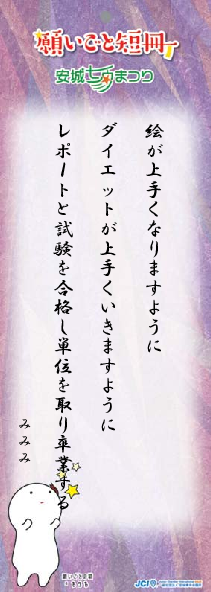 願いごと短冊
安城七夕まつり
絵が上手くなりますように
ダイエットが上手くいきますように
レポートと試験を合格し単位を取り卒業する
みみみ
JCI